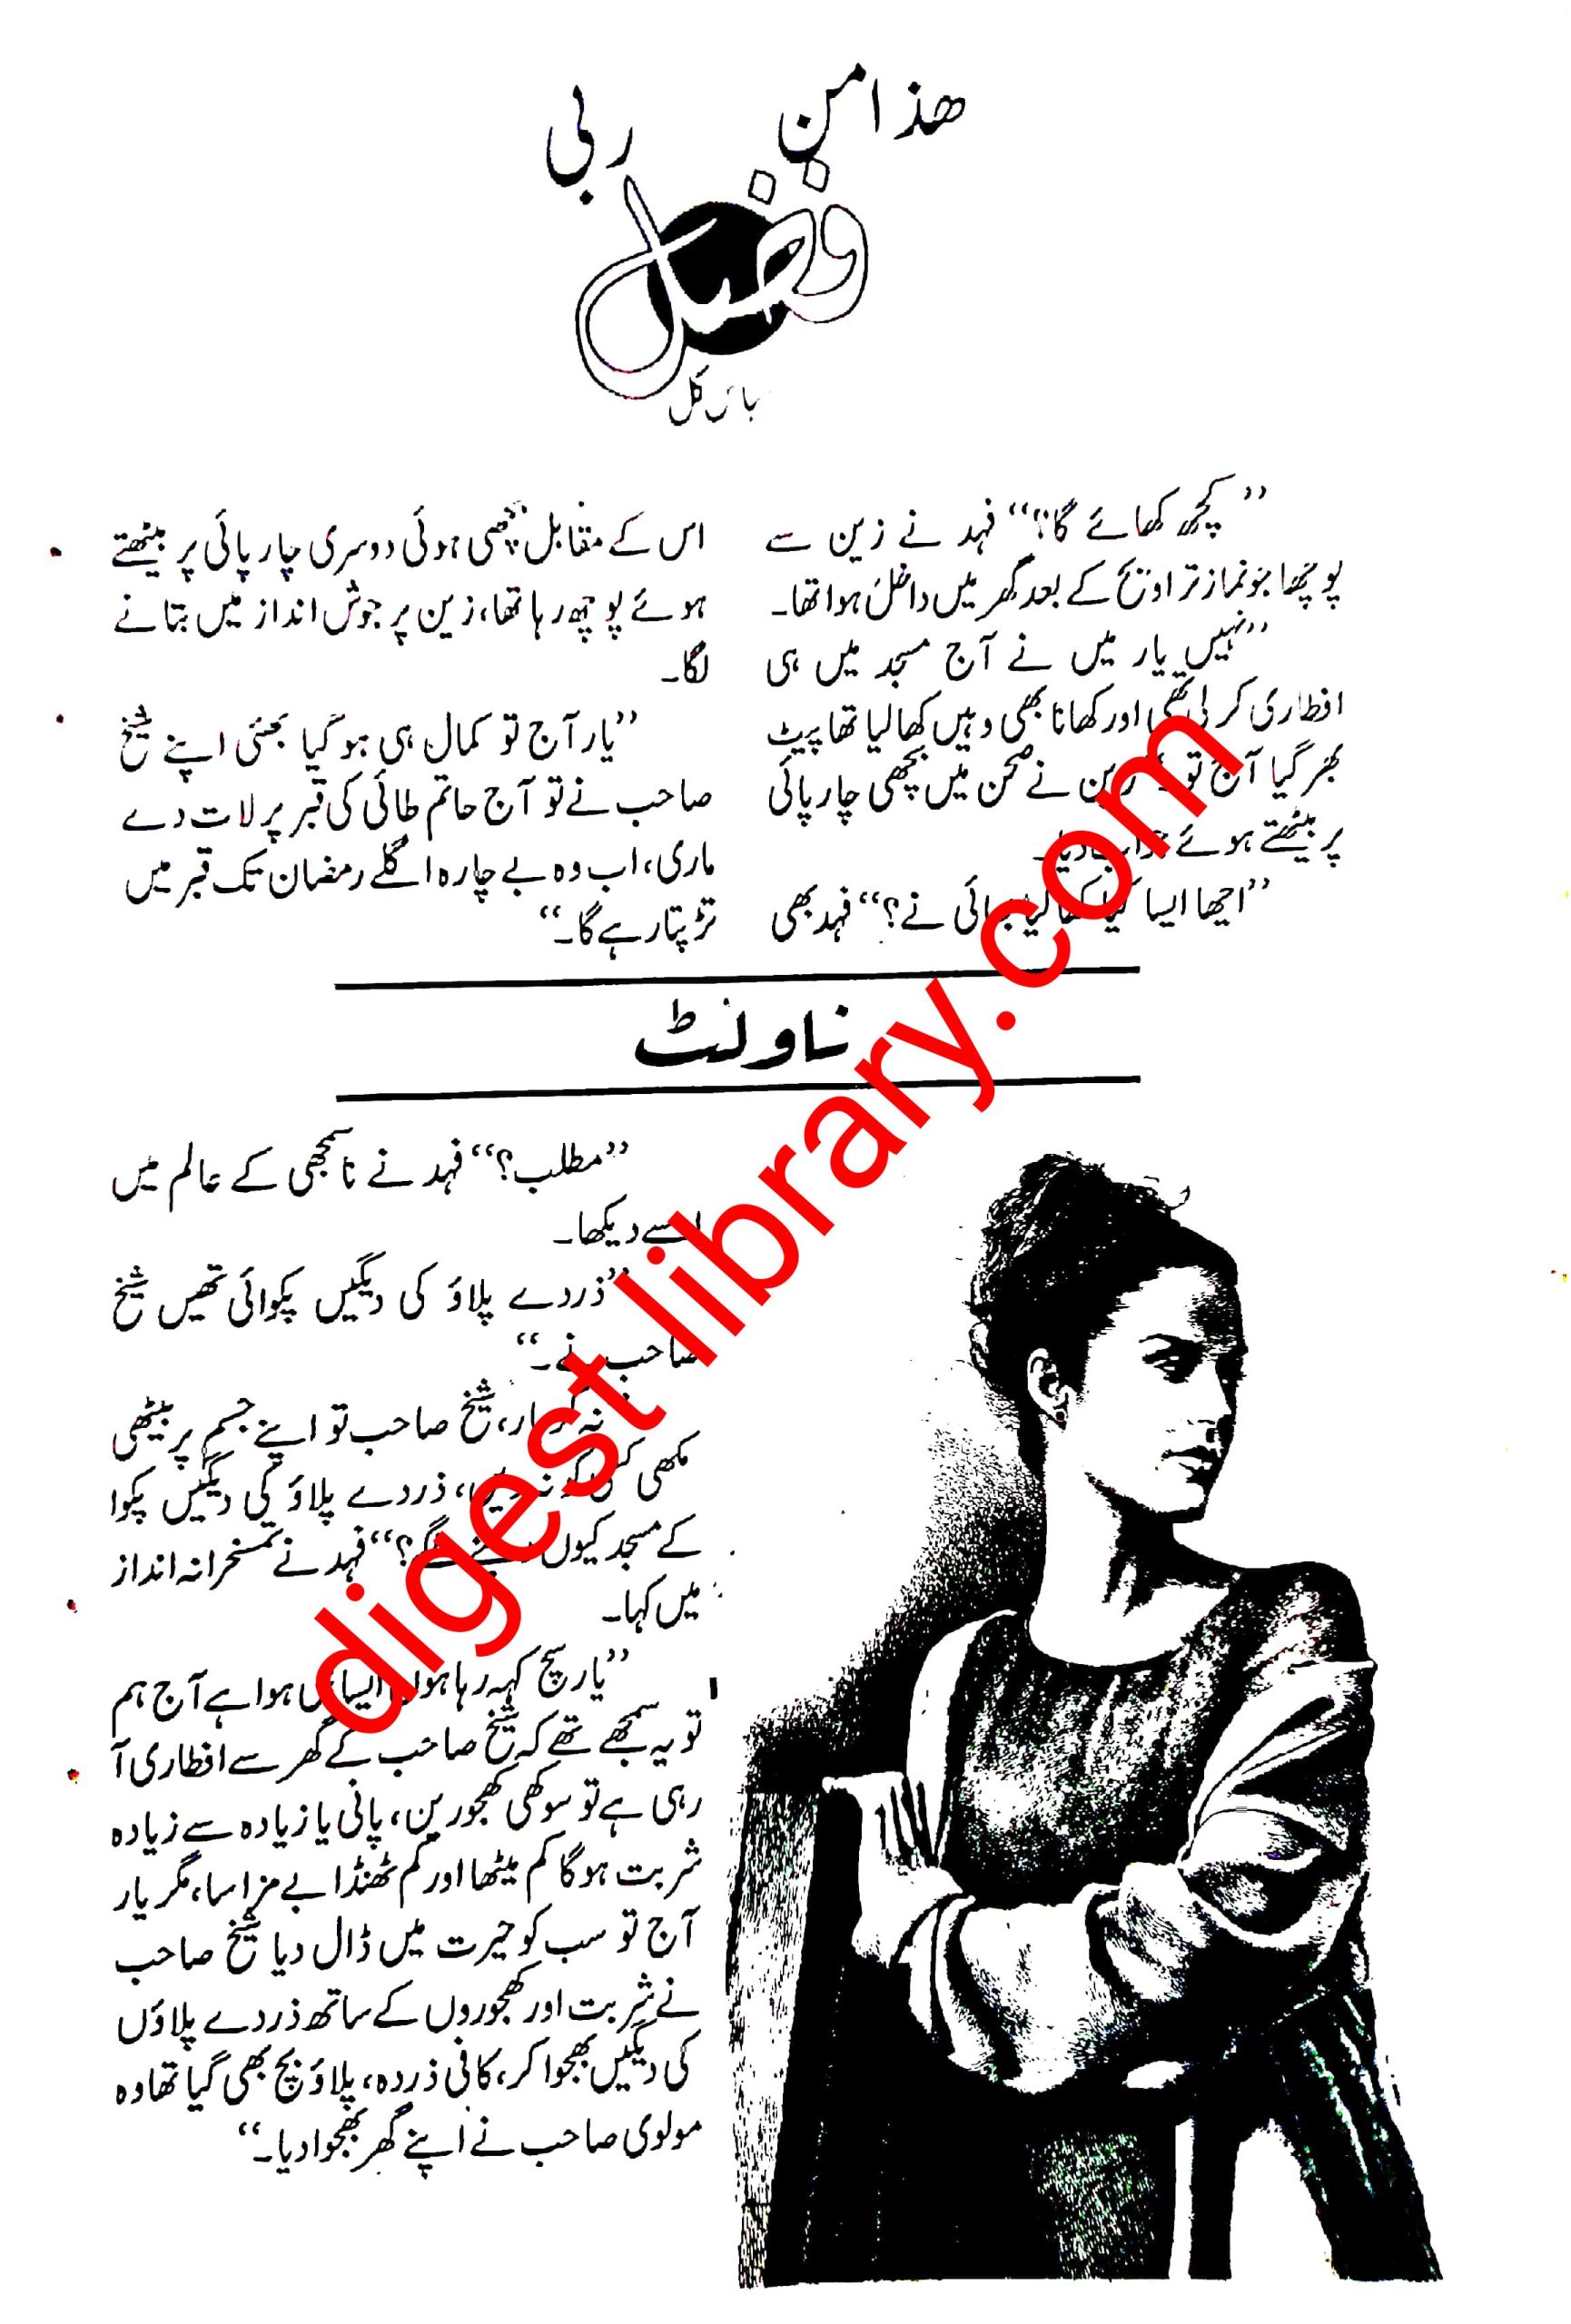 ھذا من
فضل
ربی
گل
”کچھ کھائے گا؟“ فہد نے زین سے
پوچھا جو نماز تراویح کے بعد گھر میں داخل ہوا تھا۔
”نہیں یار میں نے آج مسجد میں ہی
افطاری کر لی تھی اور کھانا بھی وہیں کھا لیا تھا پیٹ
بھر گیا آج تو نے صحن میں بچھی چارپائی
پر بیٹھتے ہوئے جواب دیا۔
”اچھا ایسا کیا کھا لیا بھائی نے؟“ فہد بھی
اس کے مقابل بچھی ہوئی دوسری چارپائی پر بیٹھتے
ہوئے پوچھ رہا تھا، زین پرجوش انداز میں بتانے
لگا۔
”یار آج تو کمال ہی ہو گیا بھئی اپنے شیخ
صاحب نے تو آج حاتم طائی کی قبر پر لات دے
ماری، اب وہ بے چارہ اگلے رمضان تک قبر میں
تڑپتا رہے گا۔“
ناولٹ
”مطلب؟“ فہد نے ناسمجھی کے عالم میں
اسے دیکھا۔
”ذردے پلاؤ کی دیگیں پکوائی تھیں شیخ
صاحب نے۔“
نہ کر یار، شیخ صاحب تو اپنے جسم پر بیٹھی
مکھی کسی کو نہ دیں، ذردے پلاؤ کی دیگیں پکوا
کے مسجد کیوں گے؟“ فہد نے تمسخرانہ انداز
میں کہا۔
”یار سچ کہہ رہا ہوں ایسا ہی ہوا ہے آج ہم
تو یہ سمجھے تھے کہ شیخ صاحب کے گھر سے افطاری آ
رہی ہے تو سوکھی کھجورین، پانی یا زیادہ سے زیادہ
شربت ہوگا کم میٹھا اور کم ٹھنڈا بے مزا سا، مگر یار
آج تو سب کو حیرت میں ڈال دیا شیخ صاحب
نے شربت اور کھجوروں کے ساتھ ذردے پلاؤں
کی دیگیں بھجوا کر، کافی ذردہ، پلاؤ بچ بھی گیا تھا وہ
مولوی صاحب نے اپنے گھر بھجوا دیا۔“
digest library.com